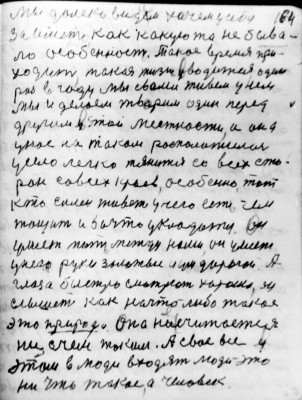 мы далеко видим зачем у себя 164
займет как какую та не быва-
ло особенность. Такое время при-
ходит, такая жизнь уводится один
раз в году мы своими живем у нем
мы и делаем творим один перед
другим у этой местности, а она
у нас их таком расположился
усело легко тянится со всех сто-
рон со всех краев, особенно тот
кто силен живет у него есть, чем
тащит и во что укладать. Он
умеет тот, между нами он умеет
у него руки золотые и им дорога. А
глаза быстро смотрят хорошо,
слышит как на что либо такое
это природа. Она не считается
ни с чем таким. А свое все у
этом в люди входят люди это
ни что такое, а человек